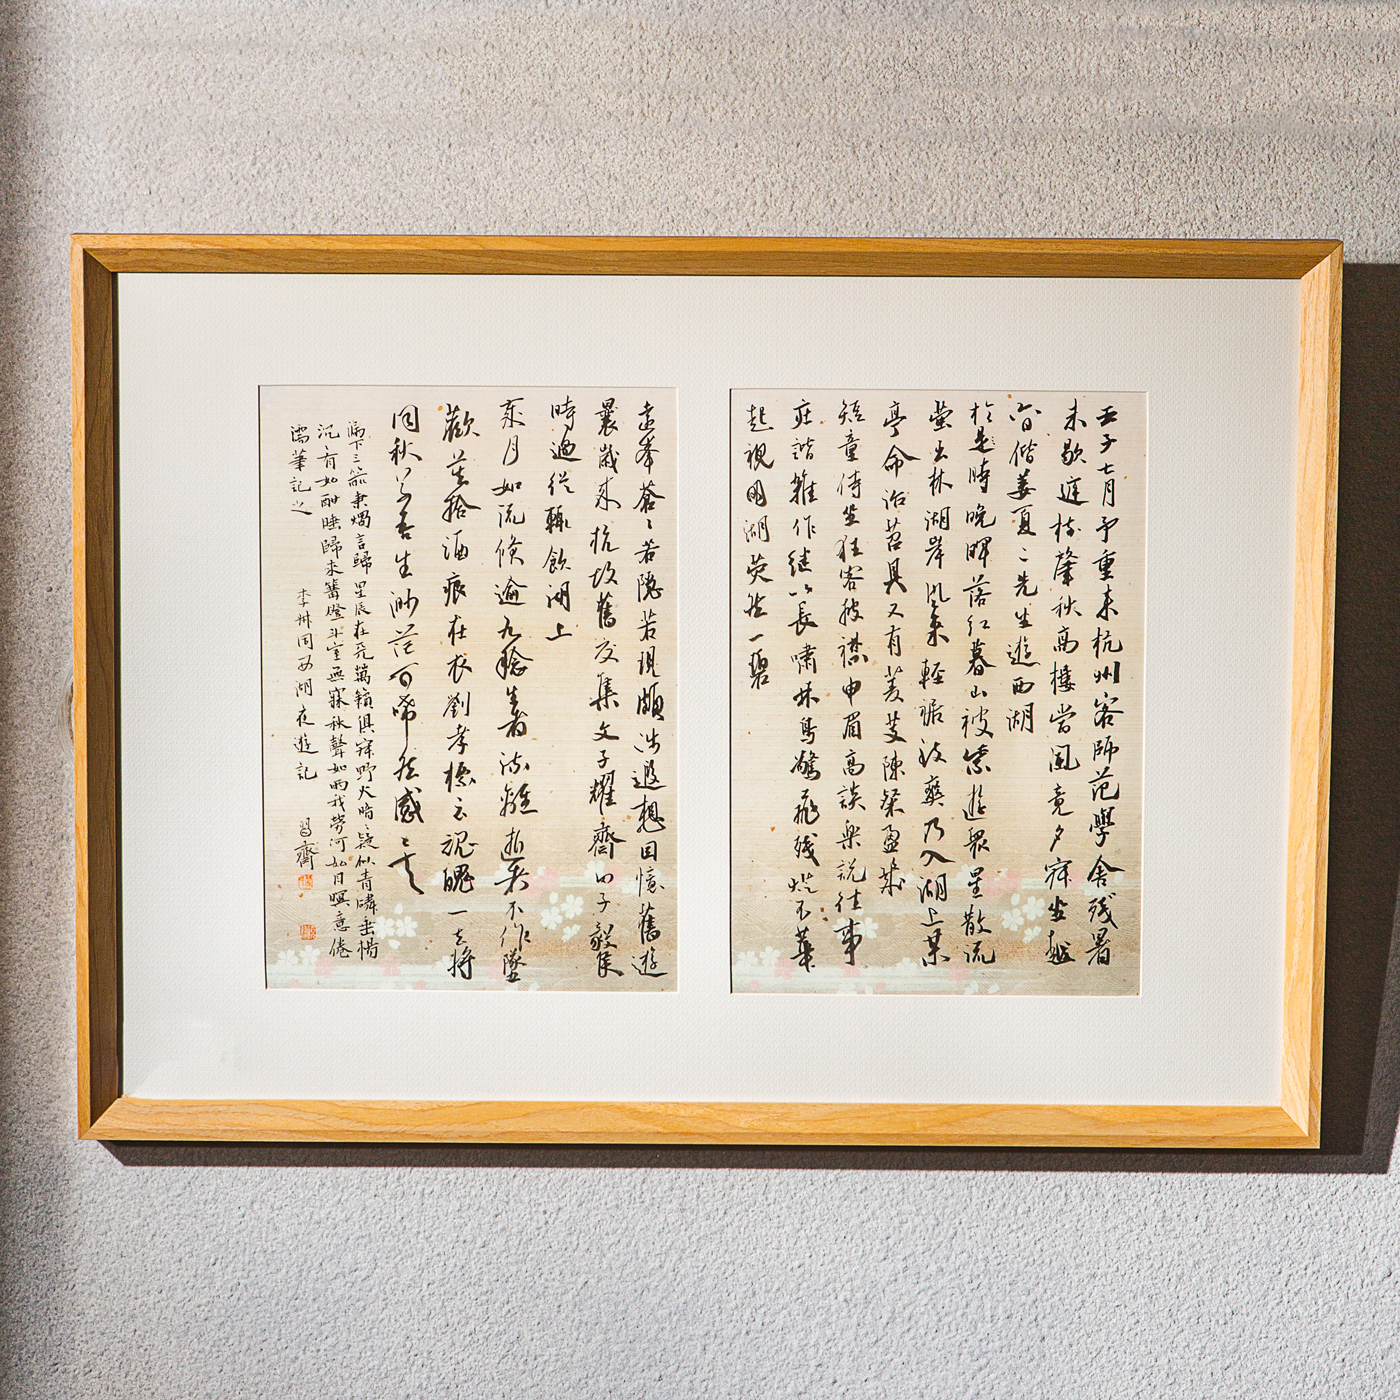 壬子七月予重来杭州客師范學舍残暑
未歇庭樹肇秋高樓當風竟夕寐坐越
日偕姜夏二先生遊西湖
於是時晚暉落紅暮山被紫遊衆星散流
螢出林湖岸風来輕裾致爽乃入湖上某
亭命治茗具又有菱芰陳粲盈几
短童侍坐狂客披襟申眉高談樂說往事
莊諧雜作继以長嘯林鳥驚飛残灯不華
起視明湖莹然一碧
遠峯蒼蒼若隐若現頗涉遐想因憶舊遊
曩歲来杭故舊交集文子耀齋田子毅侯
時過從輒飲湖上
歲月如流倏逾九稔生者流離逝者不作墜
歡莫拾酒痕在衣劉孝標云魂魄一去將
同秋草吾生渺茫可唏然感之矣
漏下三箭秉燭言歸星辰在天萬籟俱寐野火暗暗疑似青燐垂楊
沉沉有如酣睡歸来篝燈斗室無寐秋聲如雨我勞何如目瞑意倦
濡筆記之
李叔同西湖夜遊記
習齋